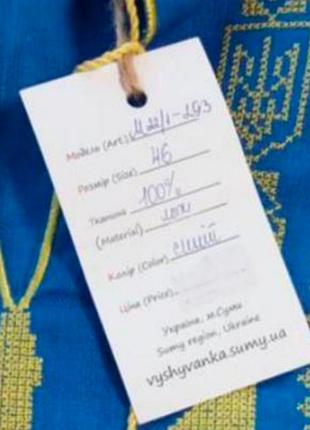 Модель (Art.) М22/1-293
Розмір (Size) 46
Тканина 100%
(Material) льон
Колір (Color) синій
Ціна (Price)
Україна, м.Суми
Sumy region, Ukraine
vyshyvanka.sumy.ua